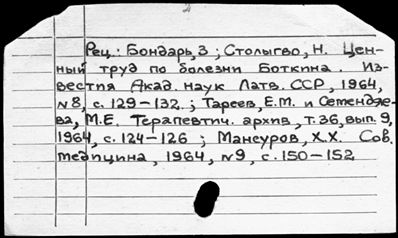 2
Рец.: Бондарь, З ; Столыгво, Н. Цен-
ный труд по болезни Боткина. Из-
вестия Акад. наук Латв. ССР, 1964,
№8, с. 129–132. ; Тареев, Е.М. и Семендяе-
ва, М.Е. Терапевтич. архив, т. 36, вып. 9,
1964, с. 124–126 ; Мансуров, Х.Х. Сов.
медицина, 1964, №9, с. 150–152